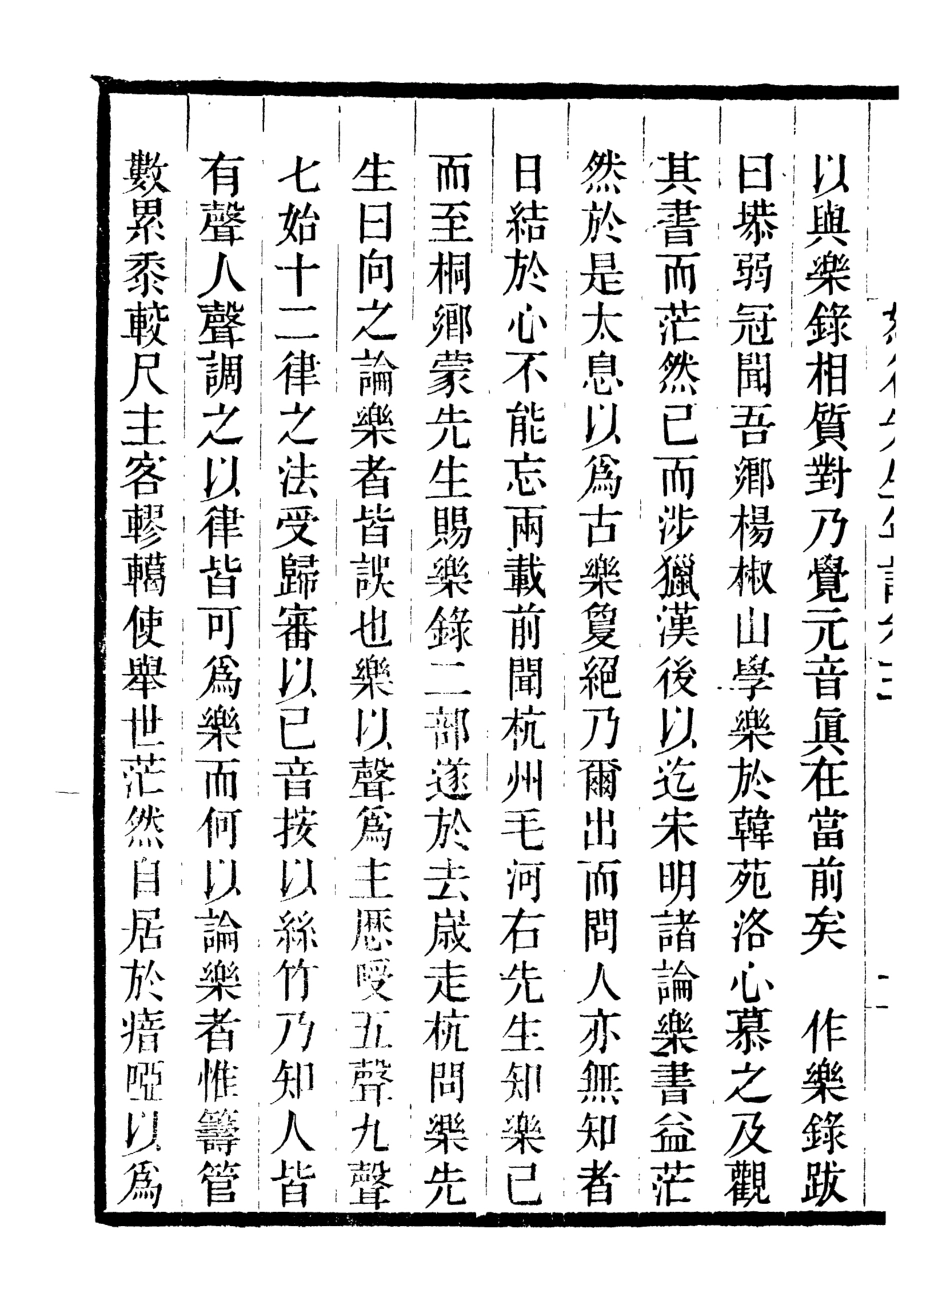 以與樂錄相質對乃覺元音眞在當前矣　作樂錄跋
曰塨弱冠聞吾鄉楊椒山學樂於韓苑洛心慕之及觀
其書而茫然已而涉獵漢後以迄宋明諸論樂書益茫
然於是太息以爲古樂敻絕乃爾出而問人亦無知者
日結於心不能忘兩載前聞杭州毛河右先生知樂已
而至桐鄉蒙先生賜樂錄二部遂於去歲走杭問樂先
生曰向之論樂者皆誤也樂以聲爲主歷受五聲九聲
七始十二律之法受歸審以已音按以絲竹乃知人皆
有聲人聲調之以律皆可爲樂而何以論樂者惟籌管
數累黍較尺主客轇轕使舉世茫然自居於瘖啞以爲